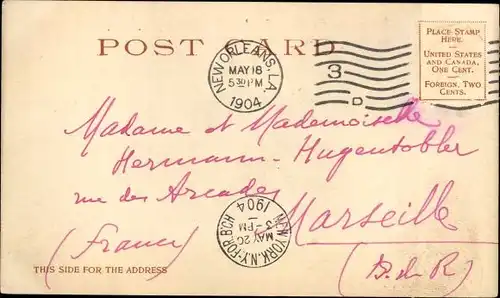 POST CARD
PLACE STAMP
HERE.
UNITED STATES
AND CANADA,
ONE CENT.
FOREIGN, TWO
CENTS.
NEW ORLEANS, LA
MAY 18
5 30 PM
1904
3
D
Madame et Mademoiselle
Hermann-Hugentobler
rue des Arcades
Marseille
(France)
(B. du R)
NEW YORK, N.Y.-FOR. B'CH
MAY 20
3-PM
1904
THIS SIDE FOR THE ADDRESS